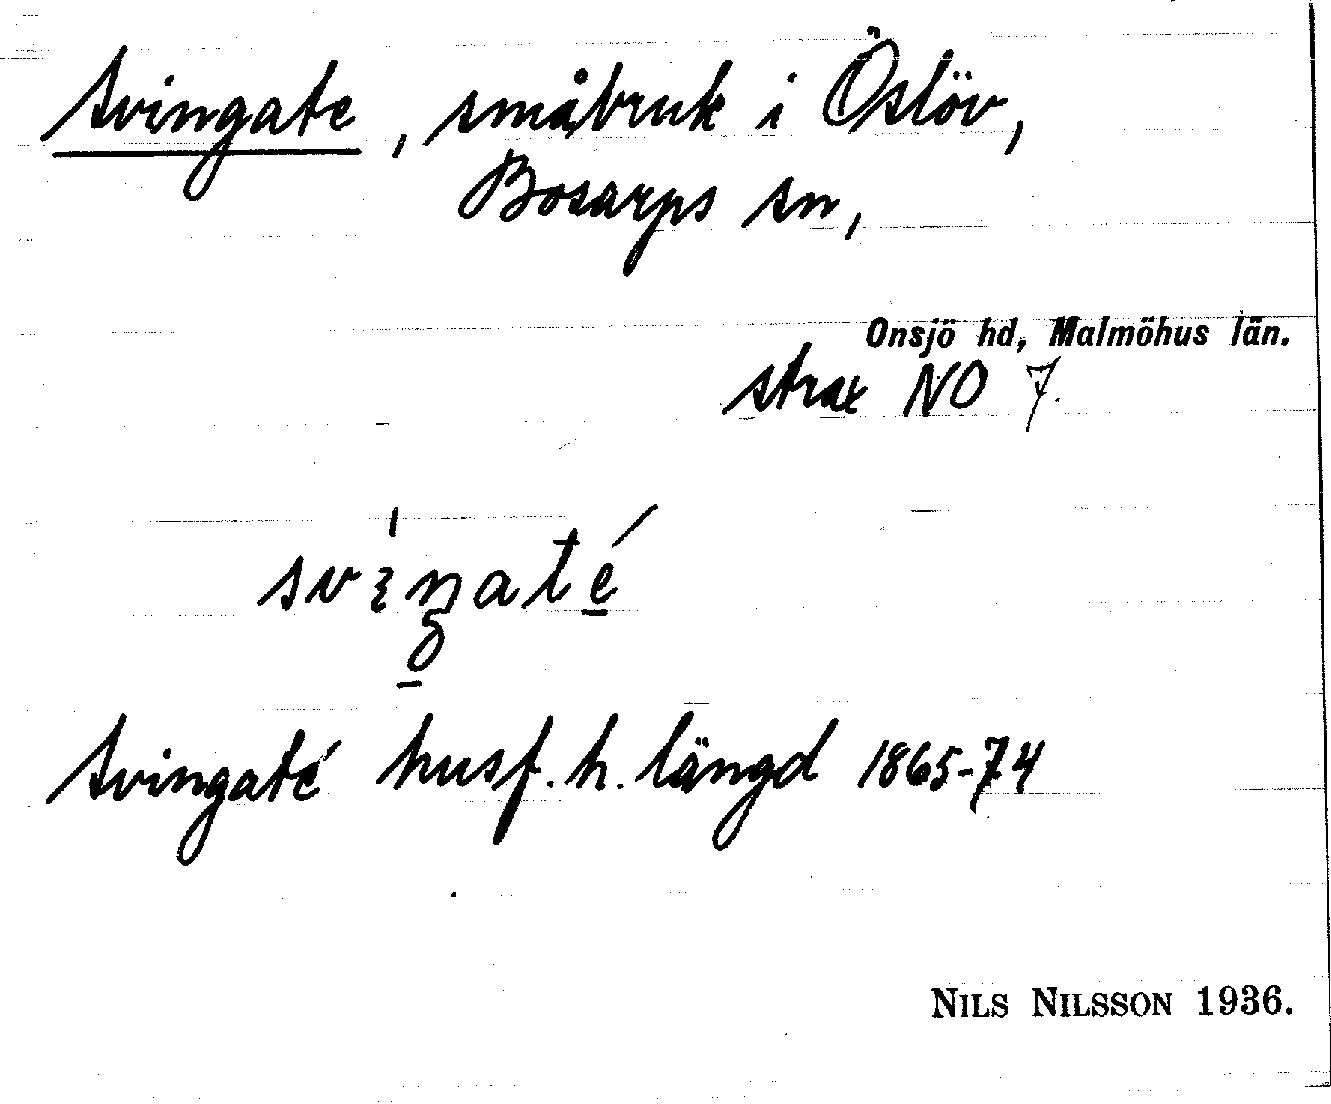 Svingate, småbruk i Öslöv,
Bosarps sn,
Onsjö hd, Malmöhus län.
strax NO 7.
Svingaté husf.h.längd 1865-74
NILS NILSSON 1936.